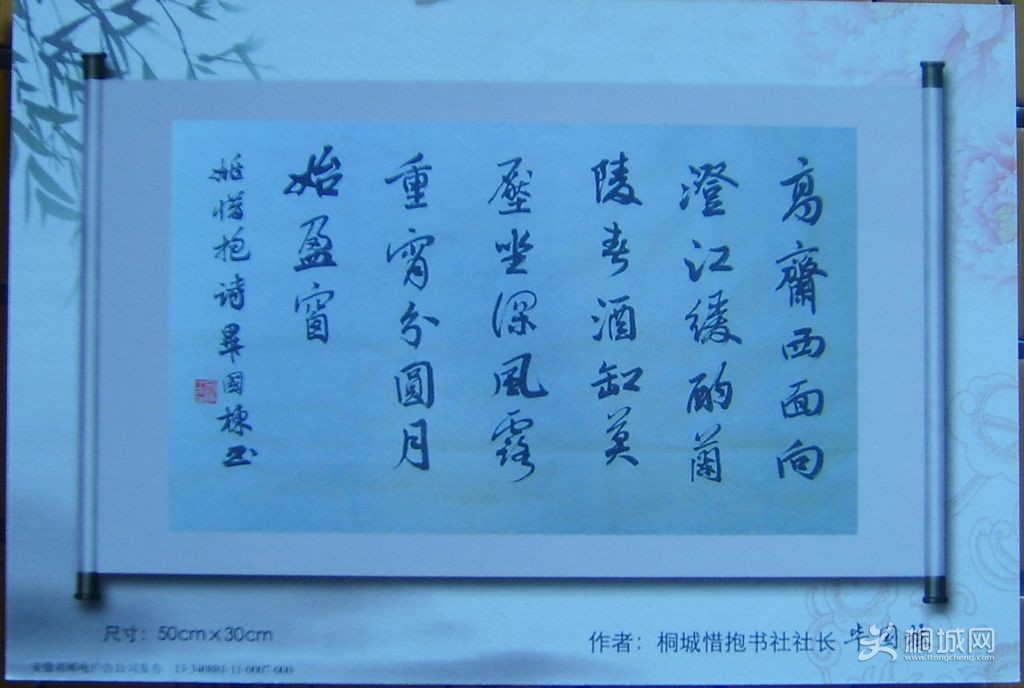 高齋西面向
澄江缓酌蘭
陵春酒缸莫
壓坐深風露
重宵分圓月
始盈窗
姚惜抱诗畢國棟书
尺寸：50cm×30cm
作者：桐城惜抱书社社长
安徽省邮电广告公司发布 13-340881-11-0007-000
桐城网
www.itongcheng.com